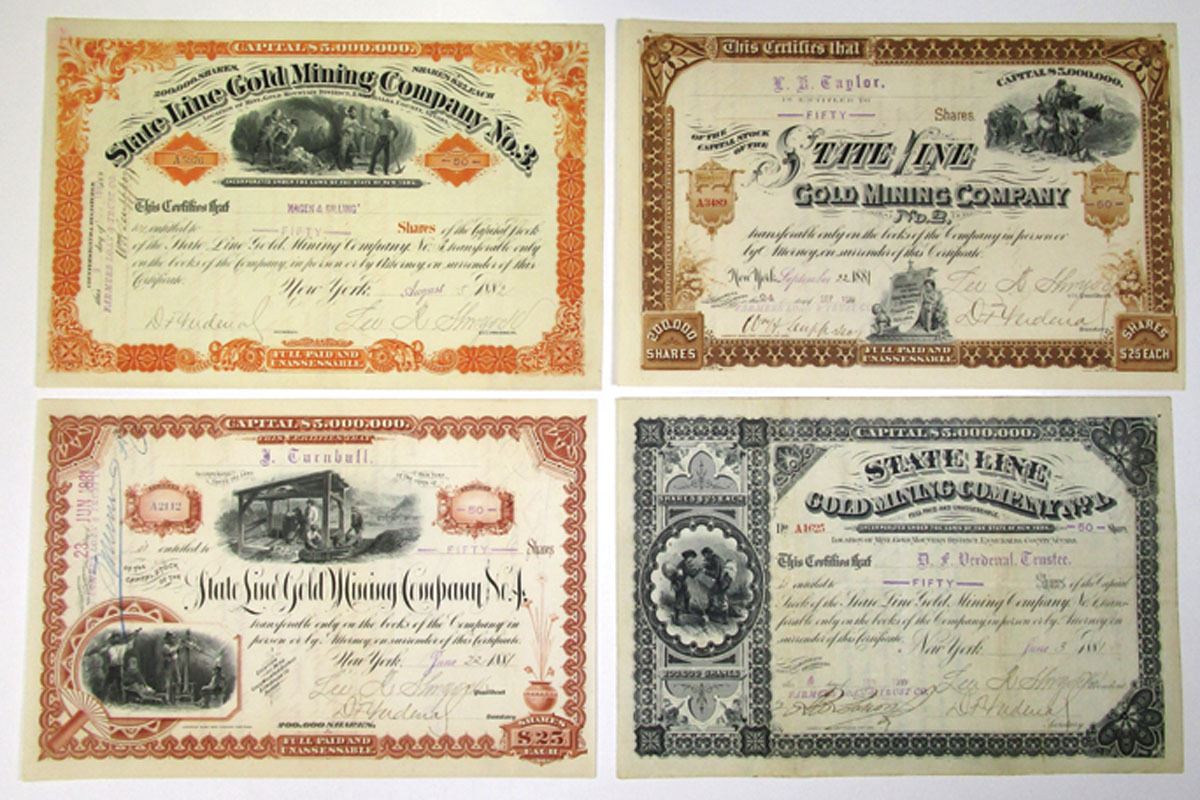 CAPITAL $5,000,000.
200,000 SHARES. SHARES $25. EACH
State Line Gold Mining Company No. 3.
LOCATION OF MINE, GOLD MOUNTAIN DISTRICT, ESMERALDA COUNTY, NEVADA.
50
INCORPORATED UNDER THE LAWS OF THE STATE OF NEW YORK.
This Certifies that
is entitled to FIFTY Shares of the Capital Stock
of the State Line Gold Mining Company No. 3 transferable only
on the books of the Company, in person or by Attorney, on surrender of this
Certificate.
New York, August 5 1882
FULL PAID AND
UNASSESSABLE.
This Certifies that
L. B. Taylor.
CAPITAL $5,000,000.
IS ENTITLED TO
FIFTY Shares
OF THE
CAPITAL STOCK
OF THE
STATE LINE
GOLD MINING COMPANY
No. 2.
A3489
50
transferable only on the books of the Company in person or
by Attorney, on surrender of this Certificate.
New York, September 22, 1881
200,000
SHARES
FULL PAID AND
UNASSESSABLE
SHARES
$25 EACH
CAPITAL $5,000,000.
THIS CERTIFIES THAT
J. Turnbull.
A2112
50
23 JUN 1881
is entitled to FIFTY Shares
OF THE
CAPITAL STOCK
OF THE
State Line Gold Mining Company No. 4.
transferable only on the books of the Company in
person or by Attorney, on surrender of this Certificate.
New York, June 22 1881
President
Secretary
200,000 SHARES.
FULL PAID AND
UNASSESSABLE.
SHARES
$25
EACH
CAPITAL $5,000,000.
STATE LINE
GOLD MINING COMPANY, No. 1.
FULL PAID AND UNASSESSABLE.
SHARES $25 EACH
No. A1625
INCORPORATED UNDER THE LAWS OF THE STATE OF NEW YORK.
50 Shares
LOCATION OF MINE, GOLD MOUNTAIN DISTRICT, ESMERALDA COUNTY, NEVADA.
This Certifies that D. F. Verdenal, Trustee.
is entitled to FIFTY Shares of the Capital
Stock of the State Line Gold Mining Company No. 1 transferable
only on the books of the Company in person or by Attorney on
surrender of this Certificate. New York, June 3 1881
FARMERS LOAN & TRUST CO.
President
Secretary
200,000 SHARES